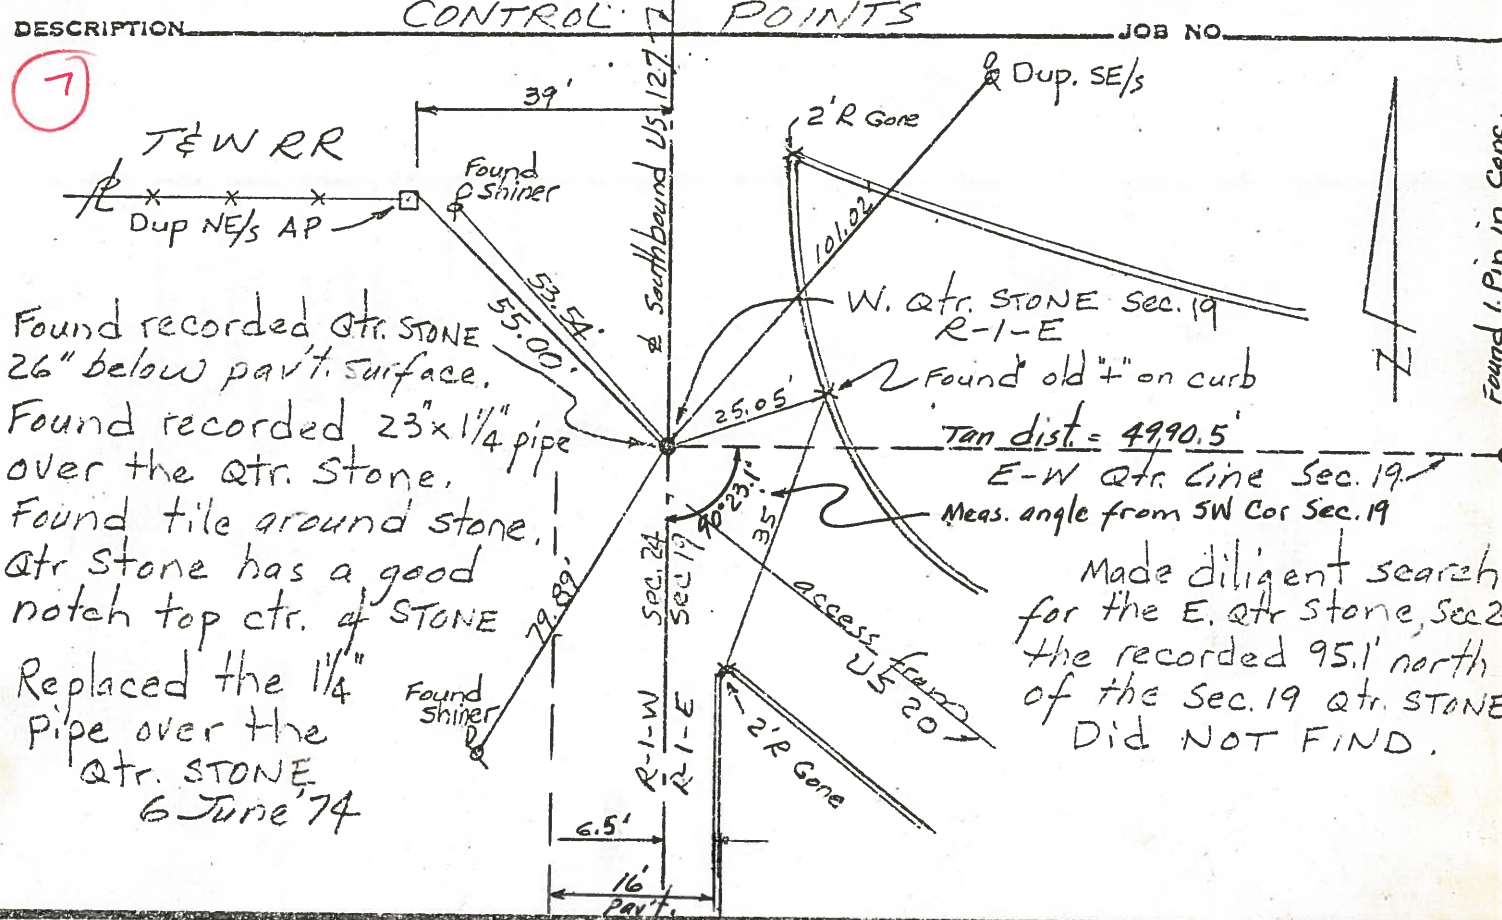 DESCRIPTION CONTROL POINTS JOB NO.
7
39'
T&W RR
Found
Shiner
Dup NE/s AP
℄ Southbound US 127
2'R Gone
Dup. SE/s
101.02'
53.54'
55.00'
W. Qtr. STONE Sec. 19
R-1-E
Found old "+" on curb
25.05'
Tan dist. = 4990.5'
E-W Qtr. Line Sec. 19
Meas. angle from SW Cor Sec. 19
90°23.1'
35'
Found recorded Qtr. STONE
26" below pav't. surface.
Found recorded 23" x 1¼" pipe
over the Qtr. Stone.
Found tile around stone.
Qtr Stone has a good
notch top ctr. of STONE
Replaced the 1¼"
pipe over the
Qtr. STONE
6 June '74
79.89'
Found
Shiner
Sec. 24
Sec 19
R-1-W
R-1-E
access from
US 20
2'R Gone
6.5'
16'
Pav't.
Made diligent search
for the E. Qtr Stone, Sec 2
the recorded 95.1' north
of the Sec. 19 Qtr. STONE
Did NOT FIND.
N
Found 1. Pin in Conc.